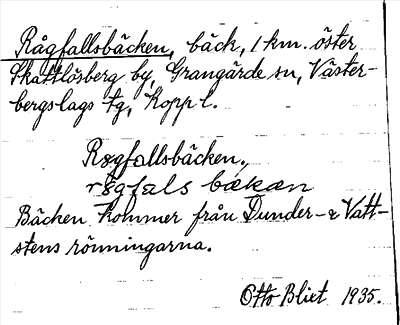 Rågfallsbäcken, bäck, 1 km. öster
Skattlösberg by, Grangärde sn, Väster-
bergslags tg, Koppl.
Røgfallsbäcken.,
røgfals bækæn
Bäcken kommer från Dunder- & Vatt-
stens rönningarna.
Otto Blixt 1935.